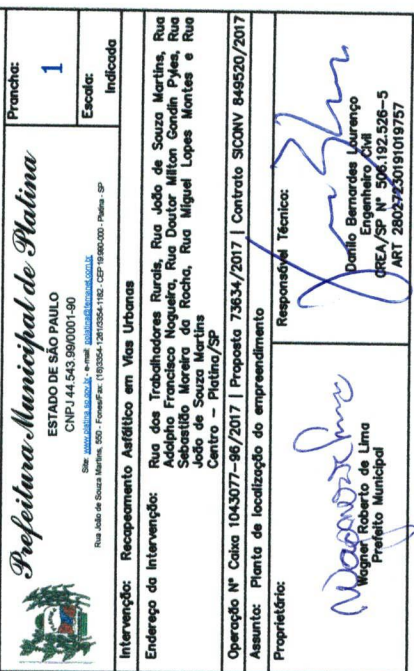 Prefeitura Municipal de Platina
ESTADO DE SÃO PAULO
CNPJ 44.543.99/0001-90
Site: www.platina.sp.gov.br - e-mail: pplatina@femanet.com.br
Rua João de Souza Martins, 550 - Fones/Fax: (18)3354-1261/3354-1162 - CEP 19.990-000 - Platina - SP
Prancha:
1
Escala:
Indicada
Intervenção: Recapeamento Asfáltico em Vias Urbanas
Endereço da Intervenção: Rua dos Trabalhadores Rurais, Rua João de Souza Martins, Rua
Adolpho Francisco Nogueira, Rua Doutor Milton Gondin Pyles, Rua
Sebastião Moreira da Rocha, Rua Miguel Lopes Montes e Rua
João de Souza Martins
Centro - Platina/SP
Operação Nº Caixa 1043077-96/2017 | Proposta 73634/2017 | Contrato SICONV 849520/2017
Assunto: Planta de localização do empreendimento
Proprietário:
Wagner Roberto de Lima
Prefeito Municipal
Responsável Técnico:
Danilo Bernardes Lourenço
Engenheiro Civil
CREA/SP Nº 506.192.526-5
ART 28027230191019757